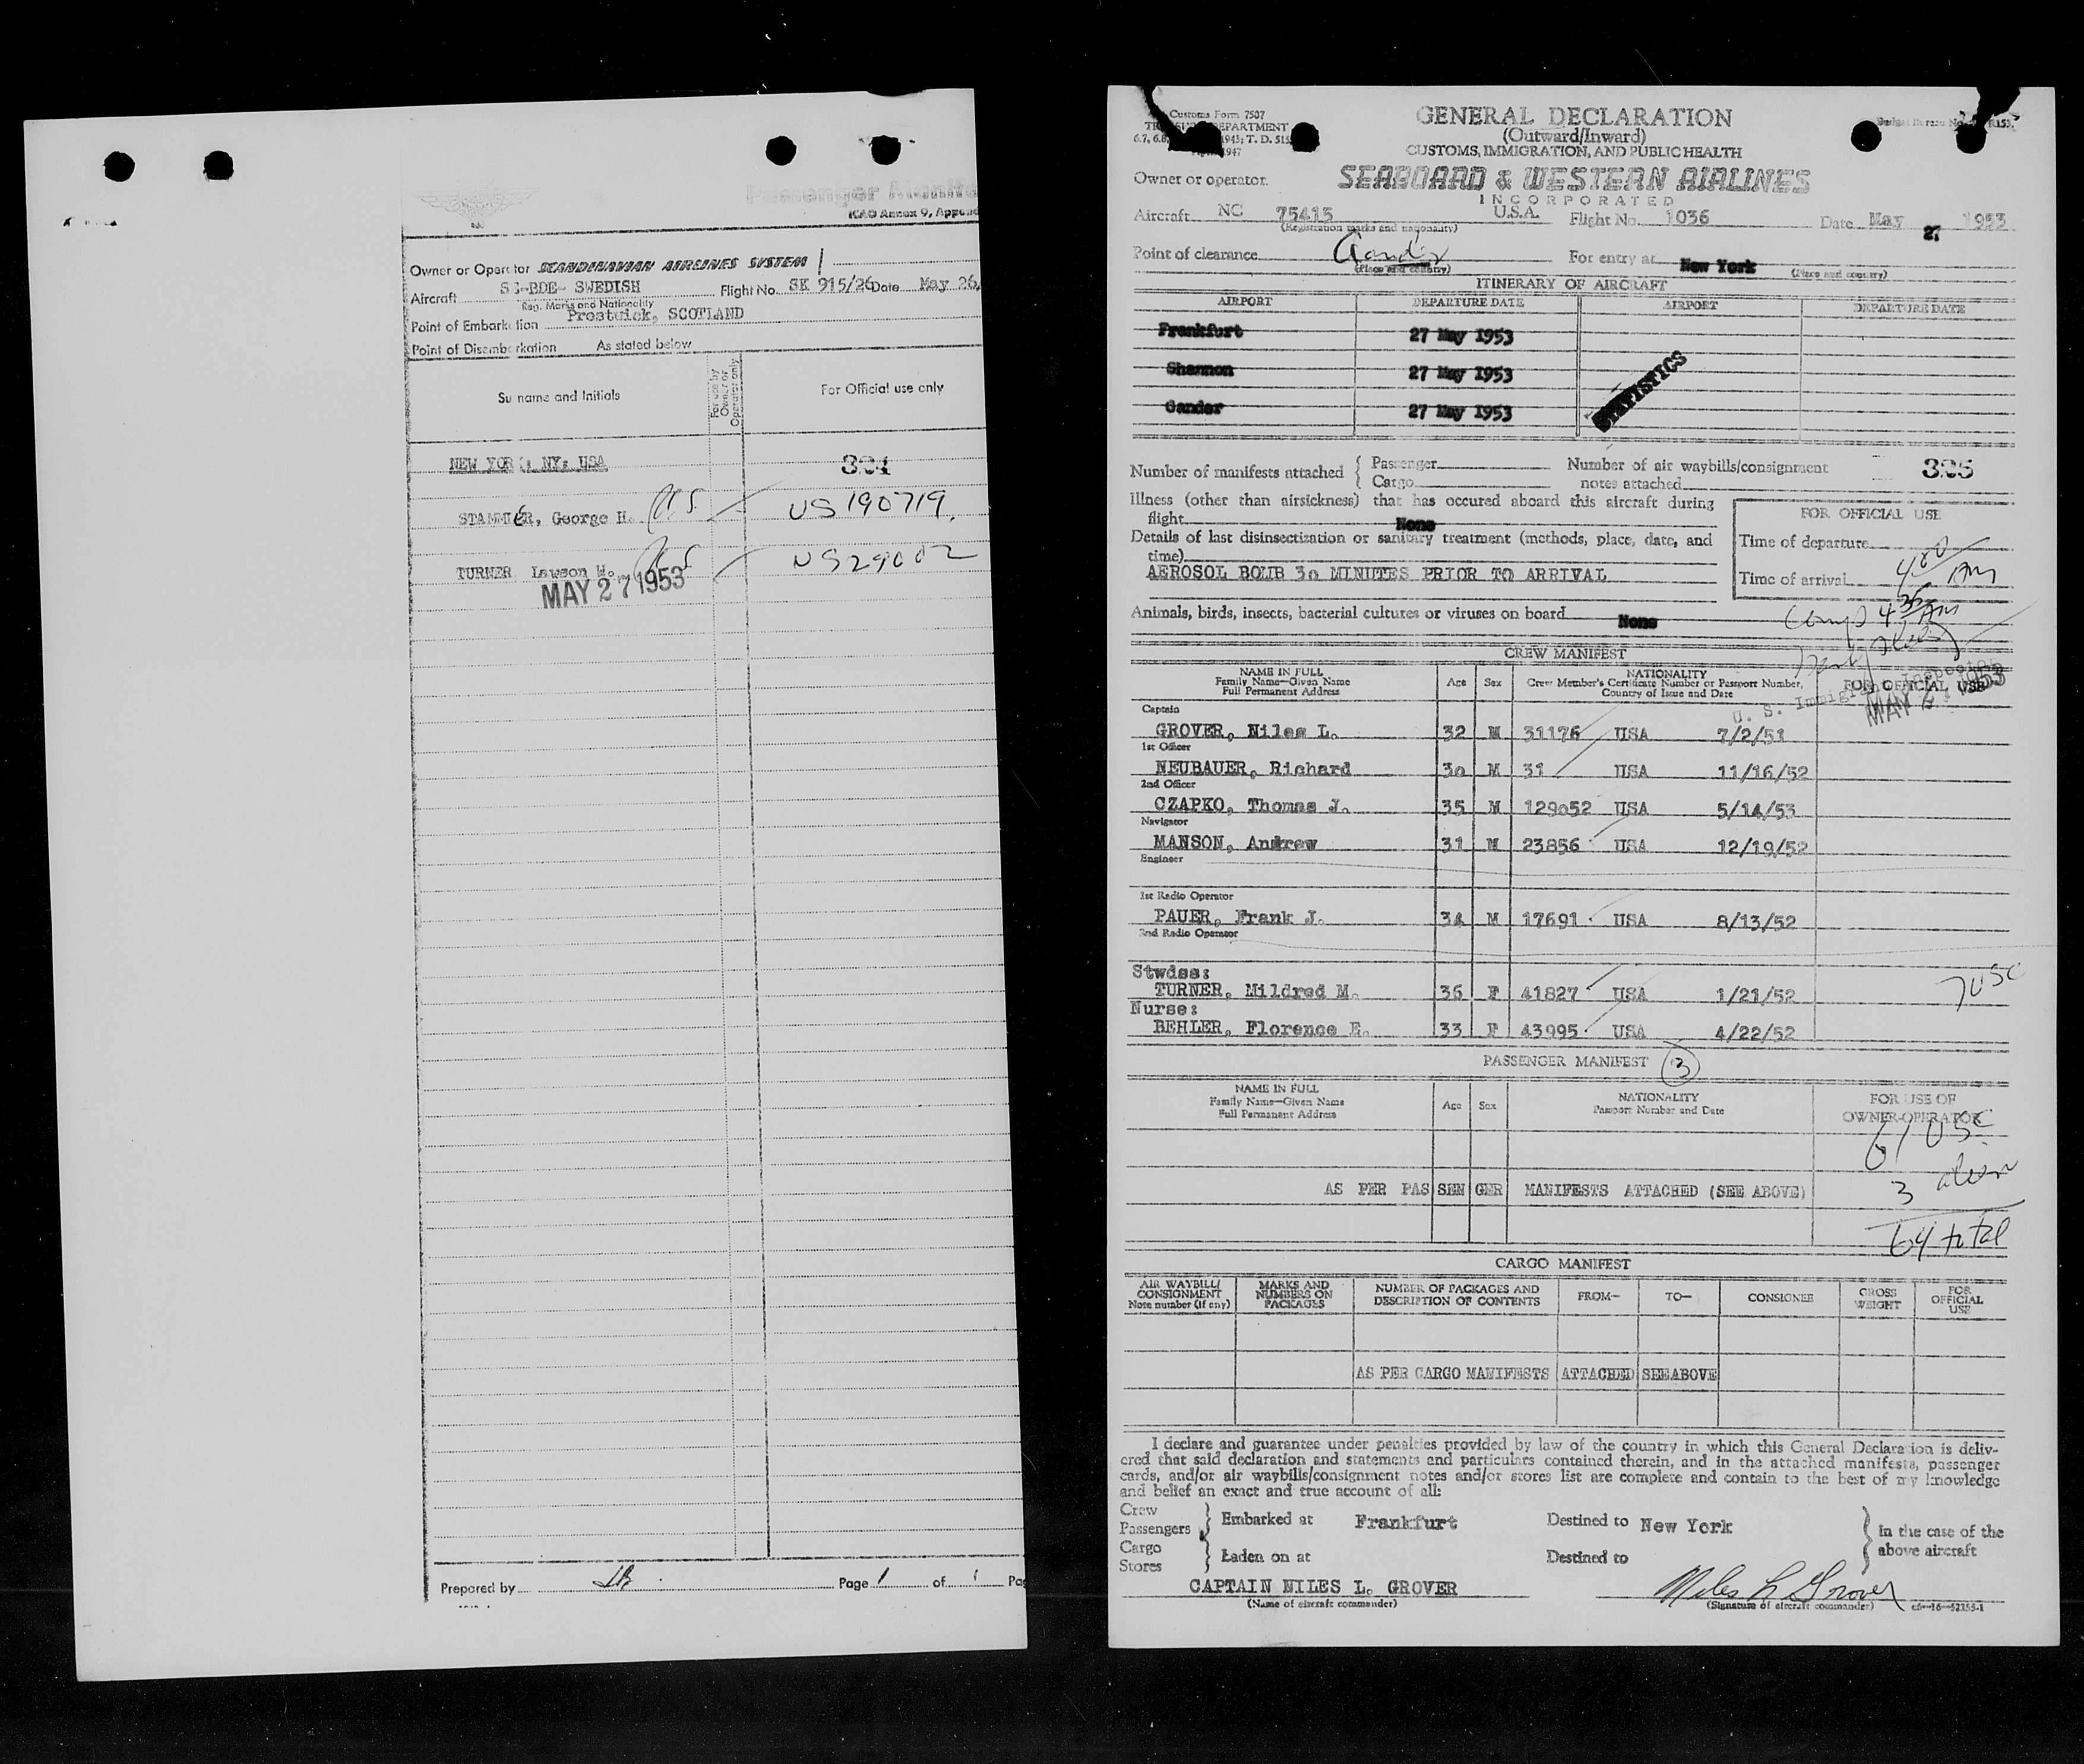 Passenger Manifest
ICAO Annex 9, Appendix
Owner or Operator SCANDINAVIAN AIRLINES SYSTEM
Aircraft SE-BDE- SWEDISH Flight No. SK 915/26 Date May 26,
Reg. Marks and Nationality
Point of Embarkation Prestwick, SCOTLAND
Point of Disembarkation As stated below
Surname and Initials
For use by Owner or Operator only
For Official use only
NEW YORK, NY, USA 324
STAMMER, George H. US 190719.
TURNER Lawson W. US 29002
MAY 27 1953
Prepared by
Page 1 of 1
Customs Form 7507
TREASURY DEPARTMENT
1947
GENERAL DECLARATION
(Outward/Inward)
CUSTOMS, IMMIGRATION, AND PUBLIC HEALTH
Owner or operator. SEABOARD & WESTERN AIRLINES
INCORPORATED
Aircraft NC 75415 U.S.A. Flight No. 1036 Date May 27 1953
(Registration marks and nationality)
Point of clearance Gander For entry at New York
(Place and country) (Place and country)
ITINERARY OF AIRCRAFT
AIRPORT DEPARTURE DATE AIRPORT DEPARTURE DATE
Frankfurt 27 May 1953
Shannon 27 May 1953
Gander 27 May 1953
STATISTICS
Number of manifests attached { Passenger Number of air waybills/consignment 325
Cargo notes attached
Illness (other than airsickness) that has occured aboard this aircraft during
flight None
FOR OFFICIAL USE
Details of last disinsectization or sanitary treatment (methods, place, date, and
time)
Time of departure
AEROSOL BOMB 30 MINUTES PRIOR TO ARRIVAL
Time of arrival 400 AM
Animals, birds, insects, bacterial cultures or viruses on board None
435 AM
CREW MANIFEST
NAME IN FULL
Family Name—Given Name
Full Permanent Address
Age Sex
NATIONALITY
Crew Member's Certificate Number or Passport Number,
Country of Issue and Date
FOR OFFICIAL USE
U. S. Immigrant Inspector
MAY 27 1953
Captain
GROVER, Niles L. 32 M 31176 USA 7/2/51
1st Officer
NEUBAUER, Richard 30 M 31 USA 11/16/52
2nd Officer
CZAPKO, Thomas J. 35 M 129052 USA 5/14/53
Navigator
MANSON, Andrew 31 M 23856 USA 12/19/52
Engineer
1st Radio Operator
PAUER, Frank J. 34 M 17691 USA 8/13/52
2nd Radio Operator
Stwdss:
TURNER, Mildred M. 36 F 41827 USA 1/21/52
7 USC
Nurse:
BEHLER, Florence E. 33 F 43995 USA 4/22/52
PASSENGER MANIFEST 3
NAME IN FULL
Family Name—Given Name
Full Permanent Address
Age Sex
NATIONALITY
Passport Number and Date
FOR USE OF
OWNER-OPERATOR
61 USC
3 alien
AS PER PASSENGER MANIFESTS ATTACHED (SEE ABOVE)
64 total
CARGO MANIFEST
AIR WAYBILL/ CONSIGNMENT Note number (if any)
MARKS AND NUMBERS ON PACKAGES
NUMBER OF PACKAGES AND DESCRIPTION OF CONTENTS
FROM— TO— CONSIGNEE GROSS WEIGHT FOR OFFICIAL USE
AS PER CARGO MANIFESTS ATTACHED SEE ABOVE
I declare and guarantee under penalties provided by law of the country in which this General Declaration is deliv-
ered that said declaration and statements and particulars contained therein, and in the attached manifests, passenger
cards, and/or air waybills/consignment notes and/or stores list are complete and contain to the best of my knowledge
and belief an exact and true account of all:
Crew
Passengers } Embarked at Frankfurt Destined to New York } In the case of the
Cargo above aircraft
Stores } Laden on at Destined to
CAPTAIN NILES L. GROVER Niles L Grover
(Name of aircraft commander) (Signature of aircraft commander) c6—16—52155-1